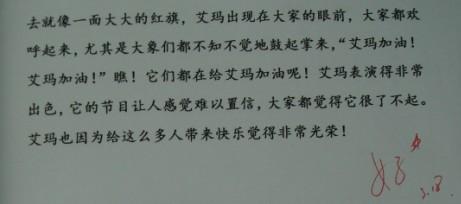 去就像一面大大的红旗，艾玛出现在大家的眼前，大家都欢
呼起来，尤其是大象们都不知不觉地鼓起掌来，“艾玛加油！
艾玛加油！”瞧！它们都在给艾玛加油呢！艾玛表演得非常
出色，它的节目让人感觉难以置信，大家都觉得它很了不起。
艾玛也因为给这么多人带来快乐觉得非常光荣！
好
3.18.